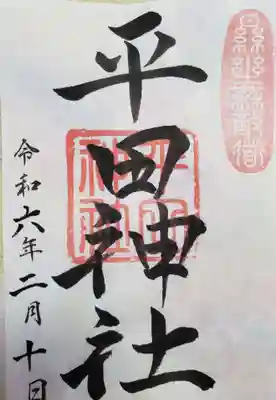 平田神社
令和六年二月十日